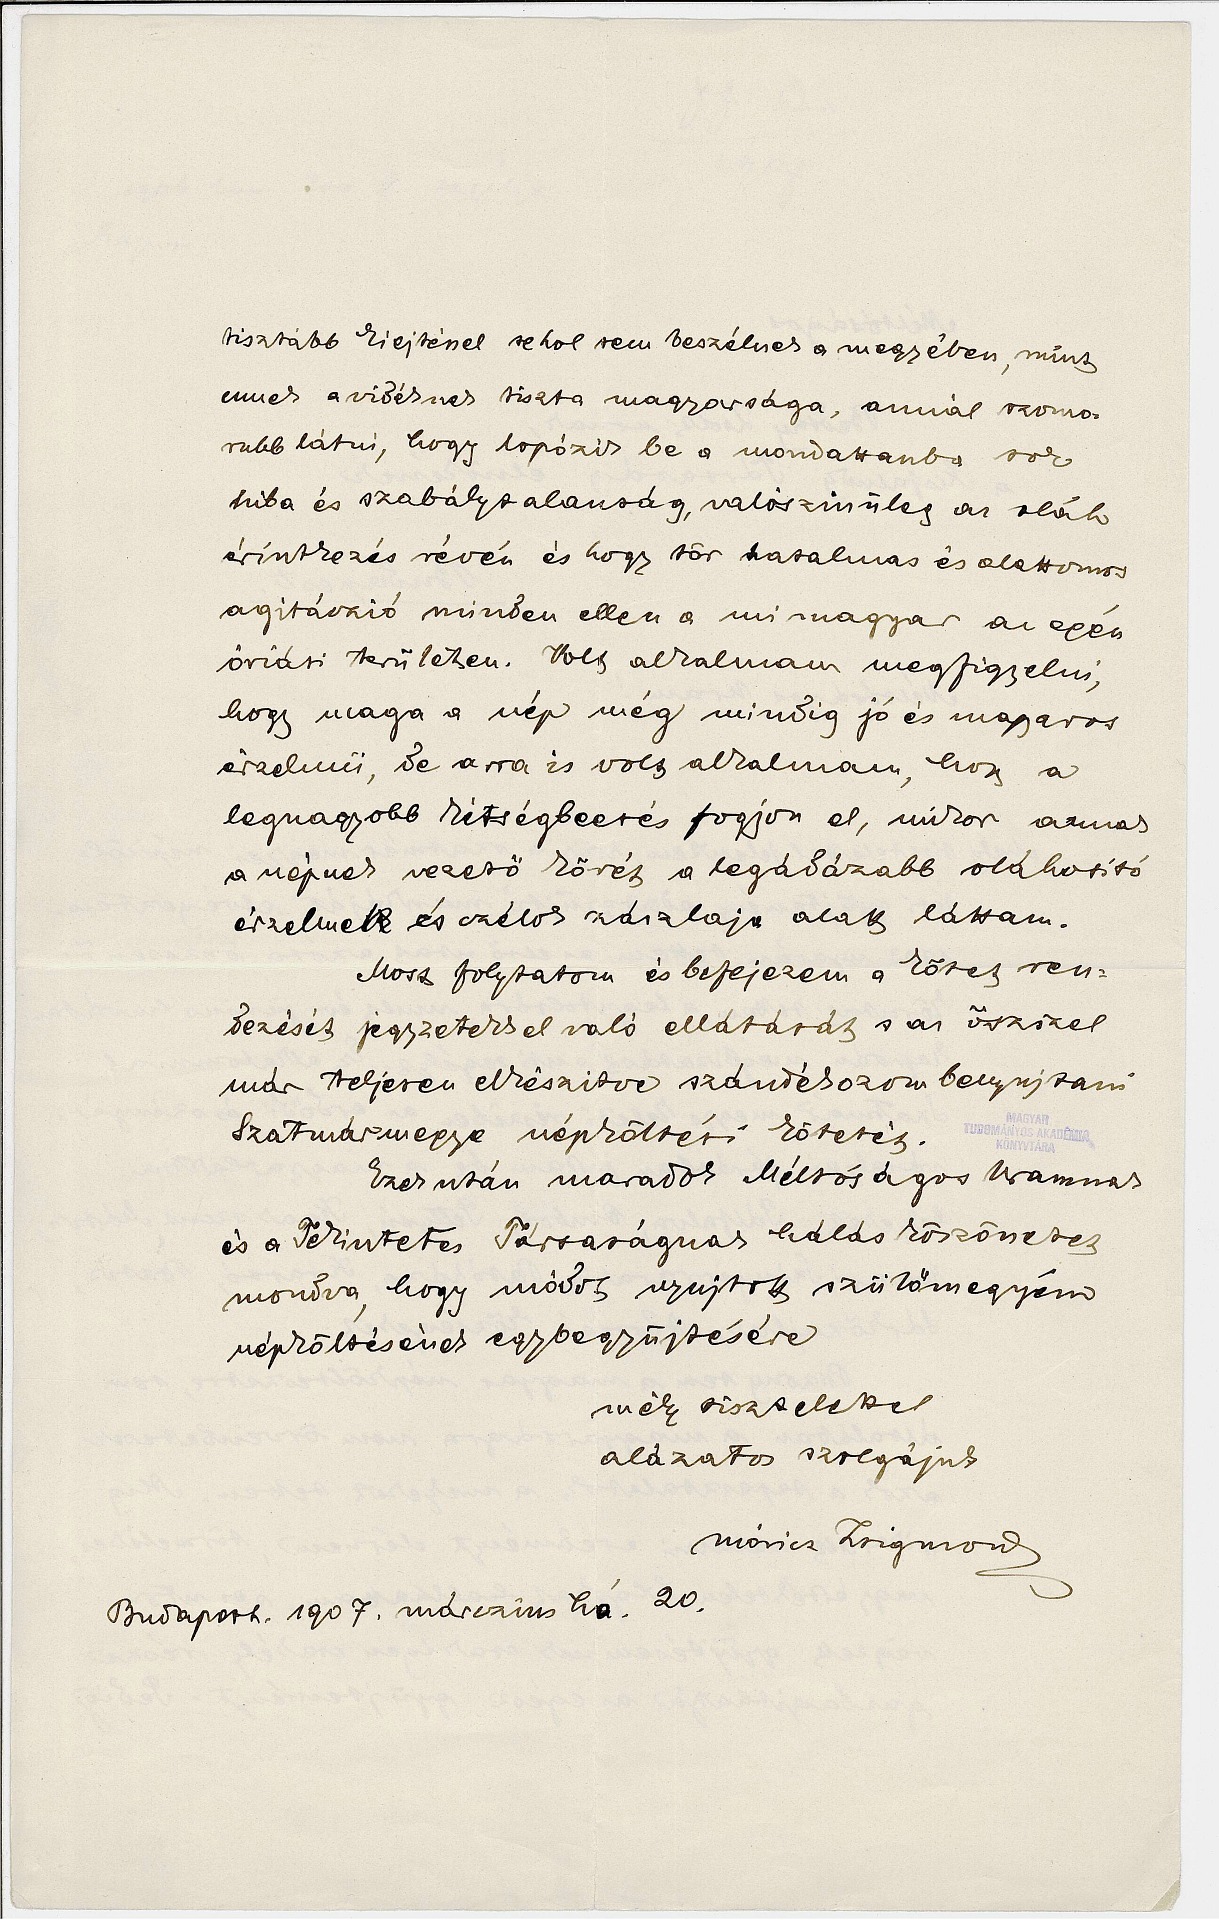 tisztább kiejtéssel sehol sem beszélnek a megyében, mint
ennek a vidéknek tiszta magyarsága, annál szomo-
rubb látni, hogy lopózik be a mondattanba sok
hiba és szabálytalanság, valószinüleg az oláh
érintkezés révén és hogy tör hatalmas és alattomos
agitáczió minden ellen a mi magyar az egén
óriási területen. Volt alkalmam megfigyelni,
hogy maga a nép még mindig jó és magyaros
érzelmü, de arra is volt alkalmam, hogy a
legnagyobb kétségbeesés fogjon el, mikor annak
a népnek vezető körét a legádázabb oláhositó
érzelmek és czélok zászlaja alatt láttam.
Most folytatom és befejezem a kötet ren-
dezését jegyzetekkel való ellátását s az őszszel
már teljesen elkészitve szándékozom benyujtani
Szatmármegye népköltési kötetét.
MAGYAR
TUDOMÁNYOS AKADÉMIA
KÖNYVTÁRA
Ezek után maradok Méltóságos Uramnak
és a Tekintetes Társaságnak hálás köszönetet
mondva, hogy módot nyujtott szülőmegyém
népköltésének egybegyüjtésére
mély tisztelettel
alázatos szolgájuk
Móricz Zsigmond
Budapest. 1907. márczius hó. 20.